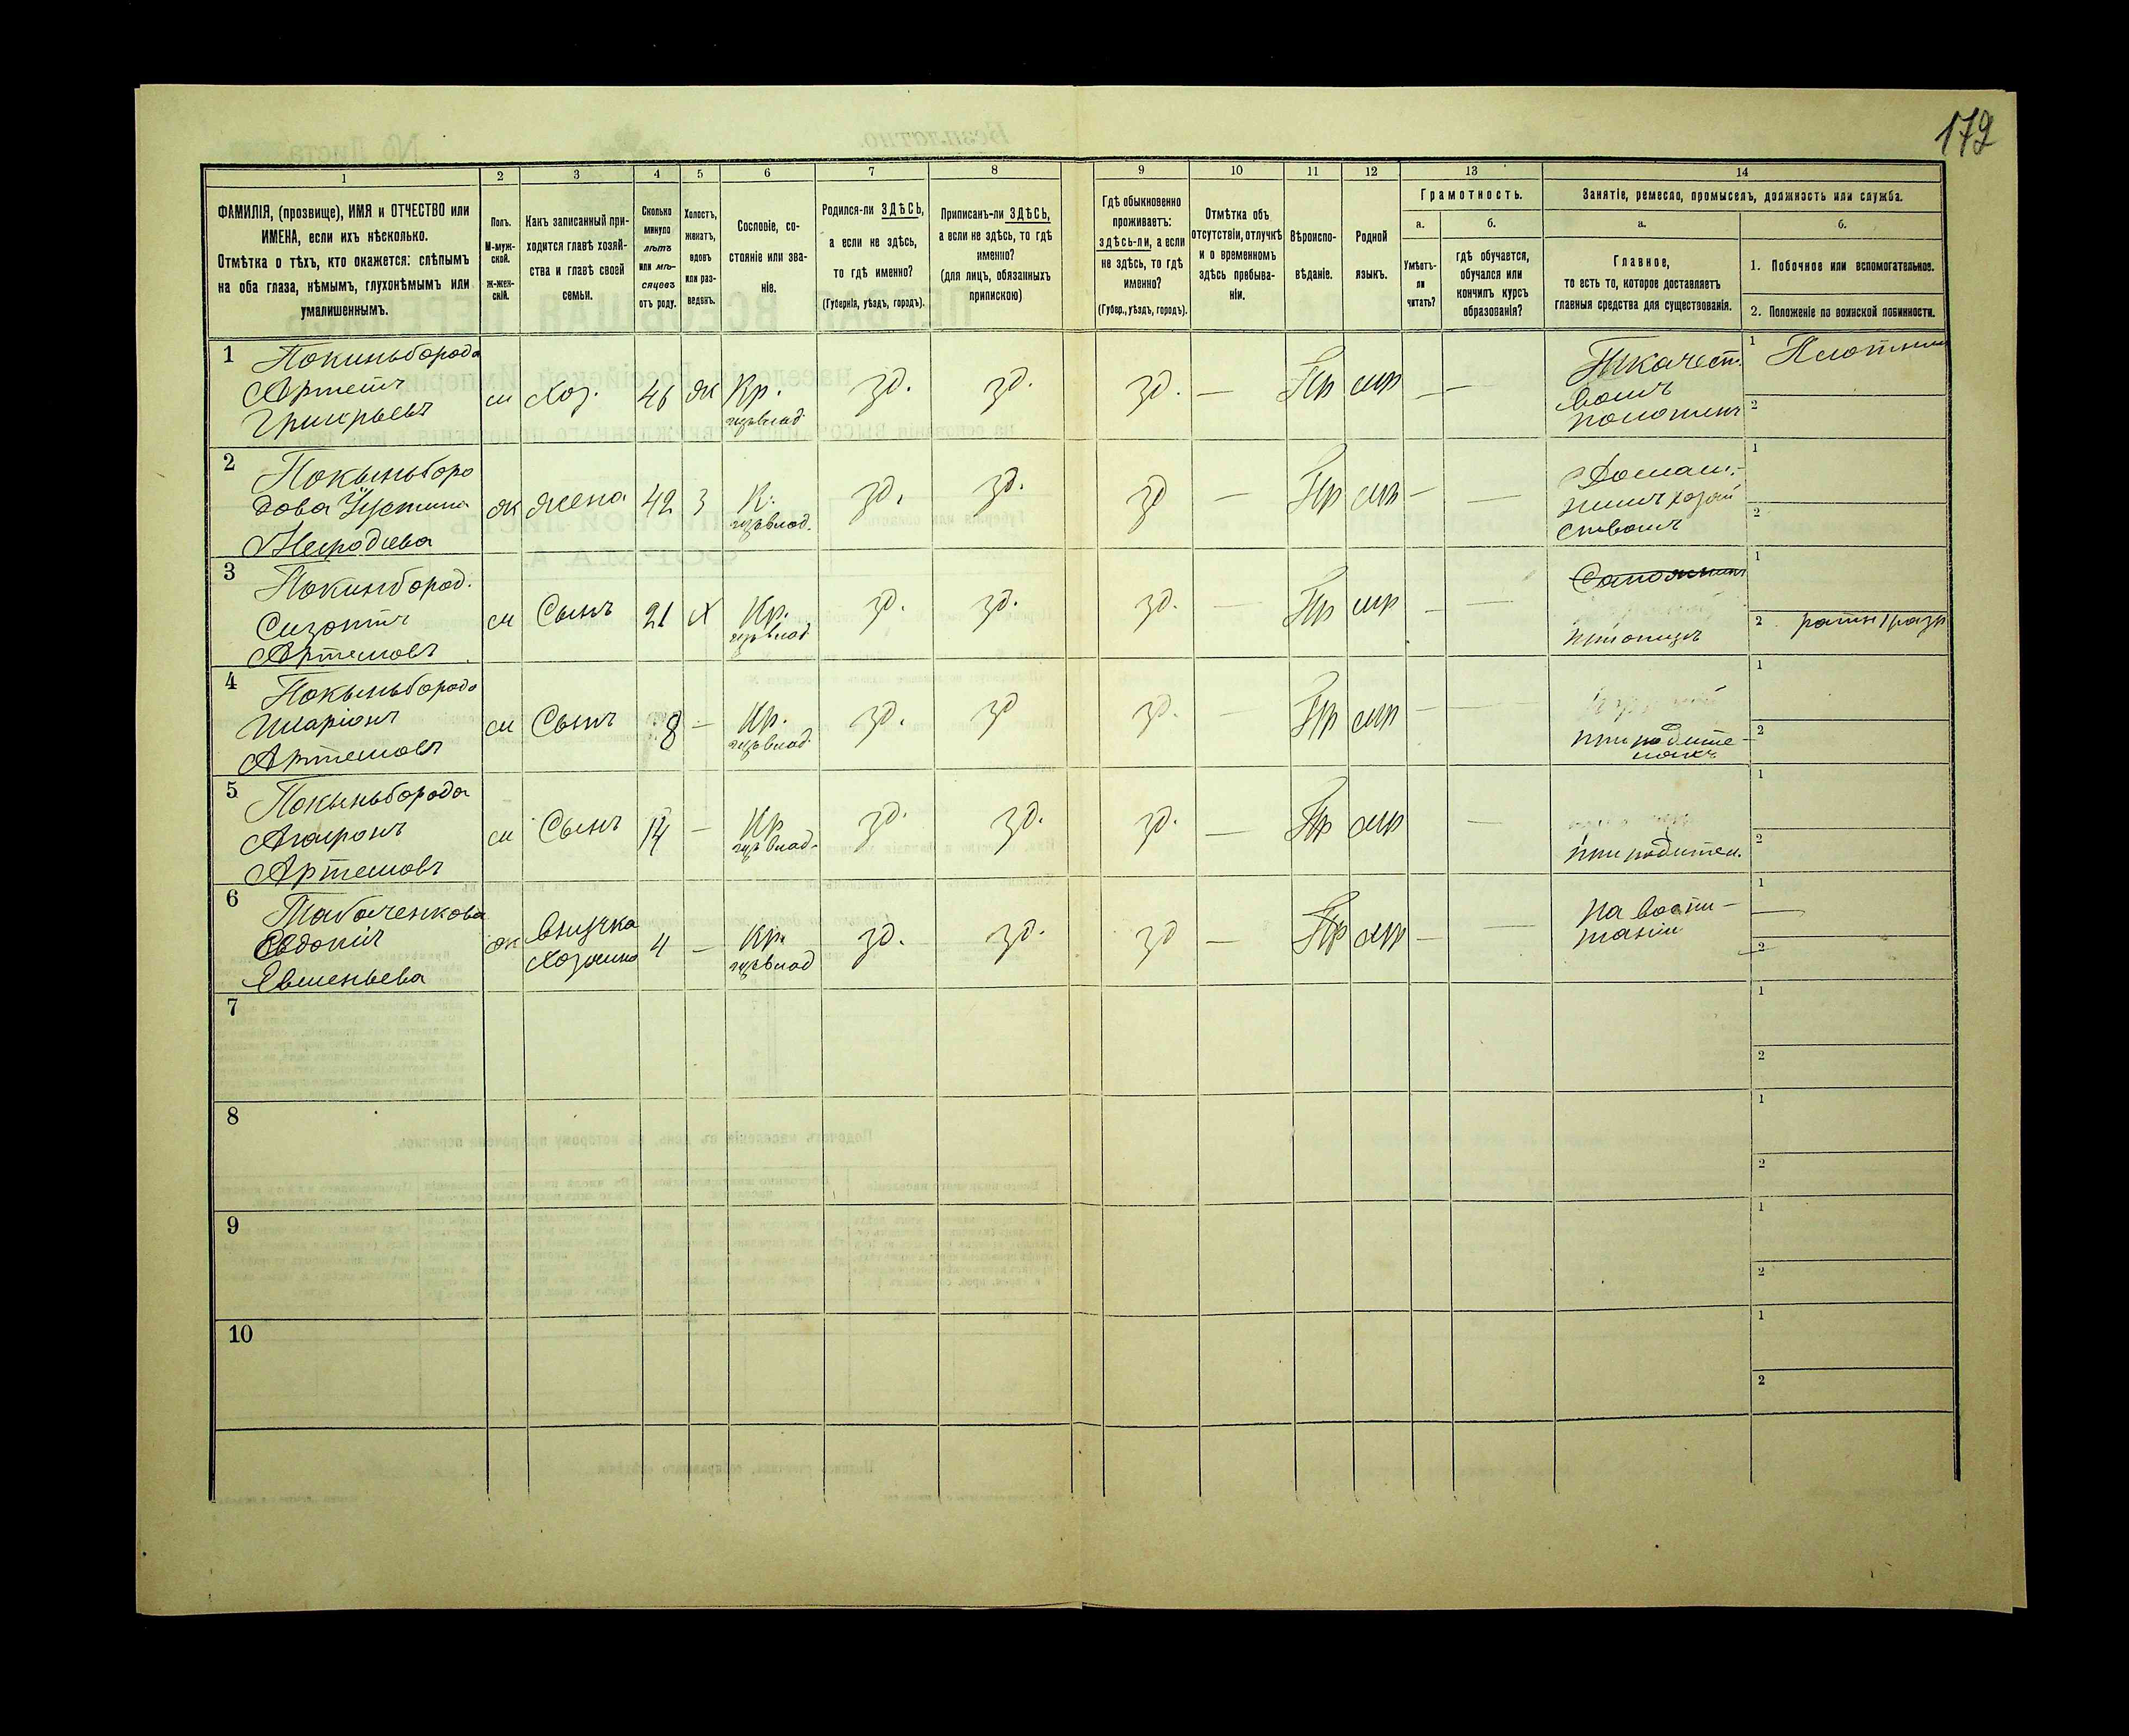 172
1 2 3 4 5 6 7 8 9 10 11 12 13 14
ФАМИЛІЯ, (прозвище), ИМЯ и ОТЧЕСТВО или
ИМЕНА, если ихъ нѣсколько.
Отмѣтка о тѣхъ, кто окажется: слѣпымъ
на оба глаза, нѣмымъ, глухонѣмымъ или
умалишеннымъ.
Полъ.
М-муж-
ской.
Ж-жен-
скій.
Какъ записанный при-
ходится главѣ хозяй-
ства и главѣ своей
семьи.
Сколько
минуло
лѣтъ
или мѣ-
сяцевъ
отъ роду.
Холостъ,
женатъ,
вдовъ
или раз-
веденъ.
Сословіе, со-
стояніе или зва-
ніе.
Родился-ли ЗДѢСЬ,
а если не здѣсь,
то гдѣ именно?
(Губернія, уѣздъ, городъ).
Приписанъ-ли ЗДѢСЬ,
а если не здѣсь, то гдѣ
именно?
(для лицъ, обязанныхъ
припискою)
Гдѣ обыкновенно
проживаетъ:
здѣсь-ли, а если
не здѣсь, то гдѣ
именно?
(Губер., уѣздъ, городъ).
Отмѣтка объ
отсутствіи, отлучкѣ
и о временномъ
здѣсь пребыва-
ніи.
Вѣроиспо-
вѣданіе.
Родной
языкъ.
Грамотность.
а.
Умѣетъ-
ли
читать?
б.
гдѣ обучается,
обучался или
кончилъ курсъ
образованія?
Занятіе, ремесло, промыселъ, должность или служба.
а.
Главное,
то есть то, которое доставляетъ
главныя средства для существованія.
б.
1. Побочное или вспомогательное.
2. Положеніе по воинской повинности.
1 Покиньборода
Артемъ
м Хоз. 46 ж Кр. зд. зд. зд. — Пр мр — —
1 Плотник
2
2 Покыньборо
дова Устина
ж жена 42 З К. зд. зд. зд — Пр мр — —
Домаш-
нимъ хозяй
ствомъ
1
2
3 Покинбород.
Сизонтъ
Артемовъ
м Сынъ 21 Х Кр. зд. зд. зд. — Пр мр — —
при отцѣ
1
2 ратн 1 разр
4 Покыньборода
Иларіонъ
Артемовъ
м Сынъ 8 — Кр. зд. зд зд. — Пр мр — —
при родите-
ляхъ
1
2
5 Покыньборода
Артемовъ
м Сынъ 14 — Кр зд. зд. зд. — Пр мр —
при родител.
1
2
6 Табаченкова
Евдокія
внучка
хозяина
ж 4 — Кр. зд. зд. зд — Пр мр — —
На воспи-
таніи
1 —
2 —
7
1
2
8
1
2
9
1
2
10
1
2